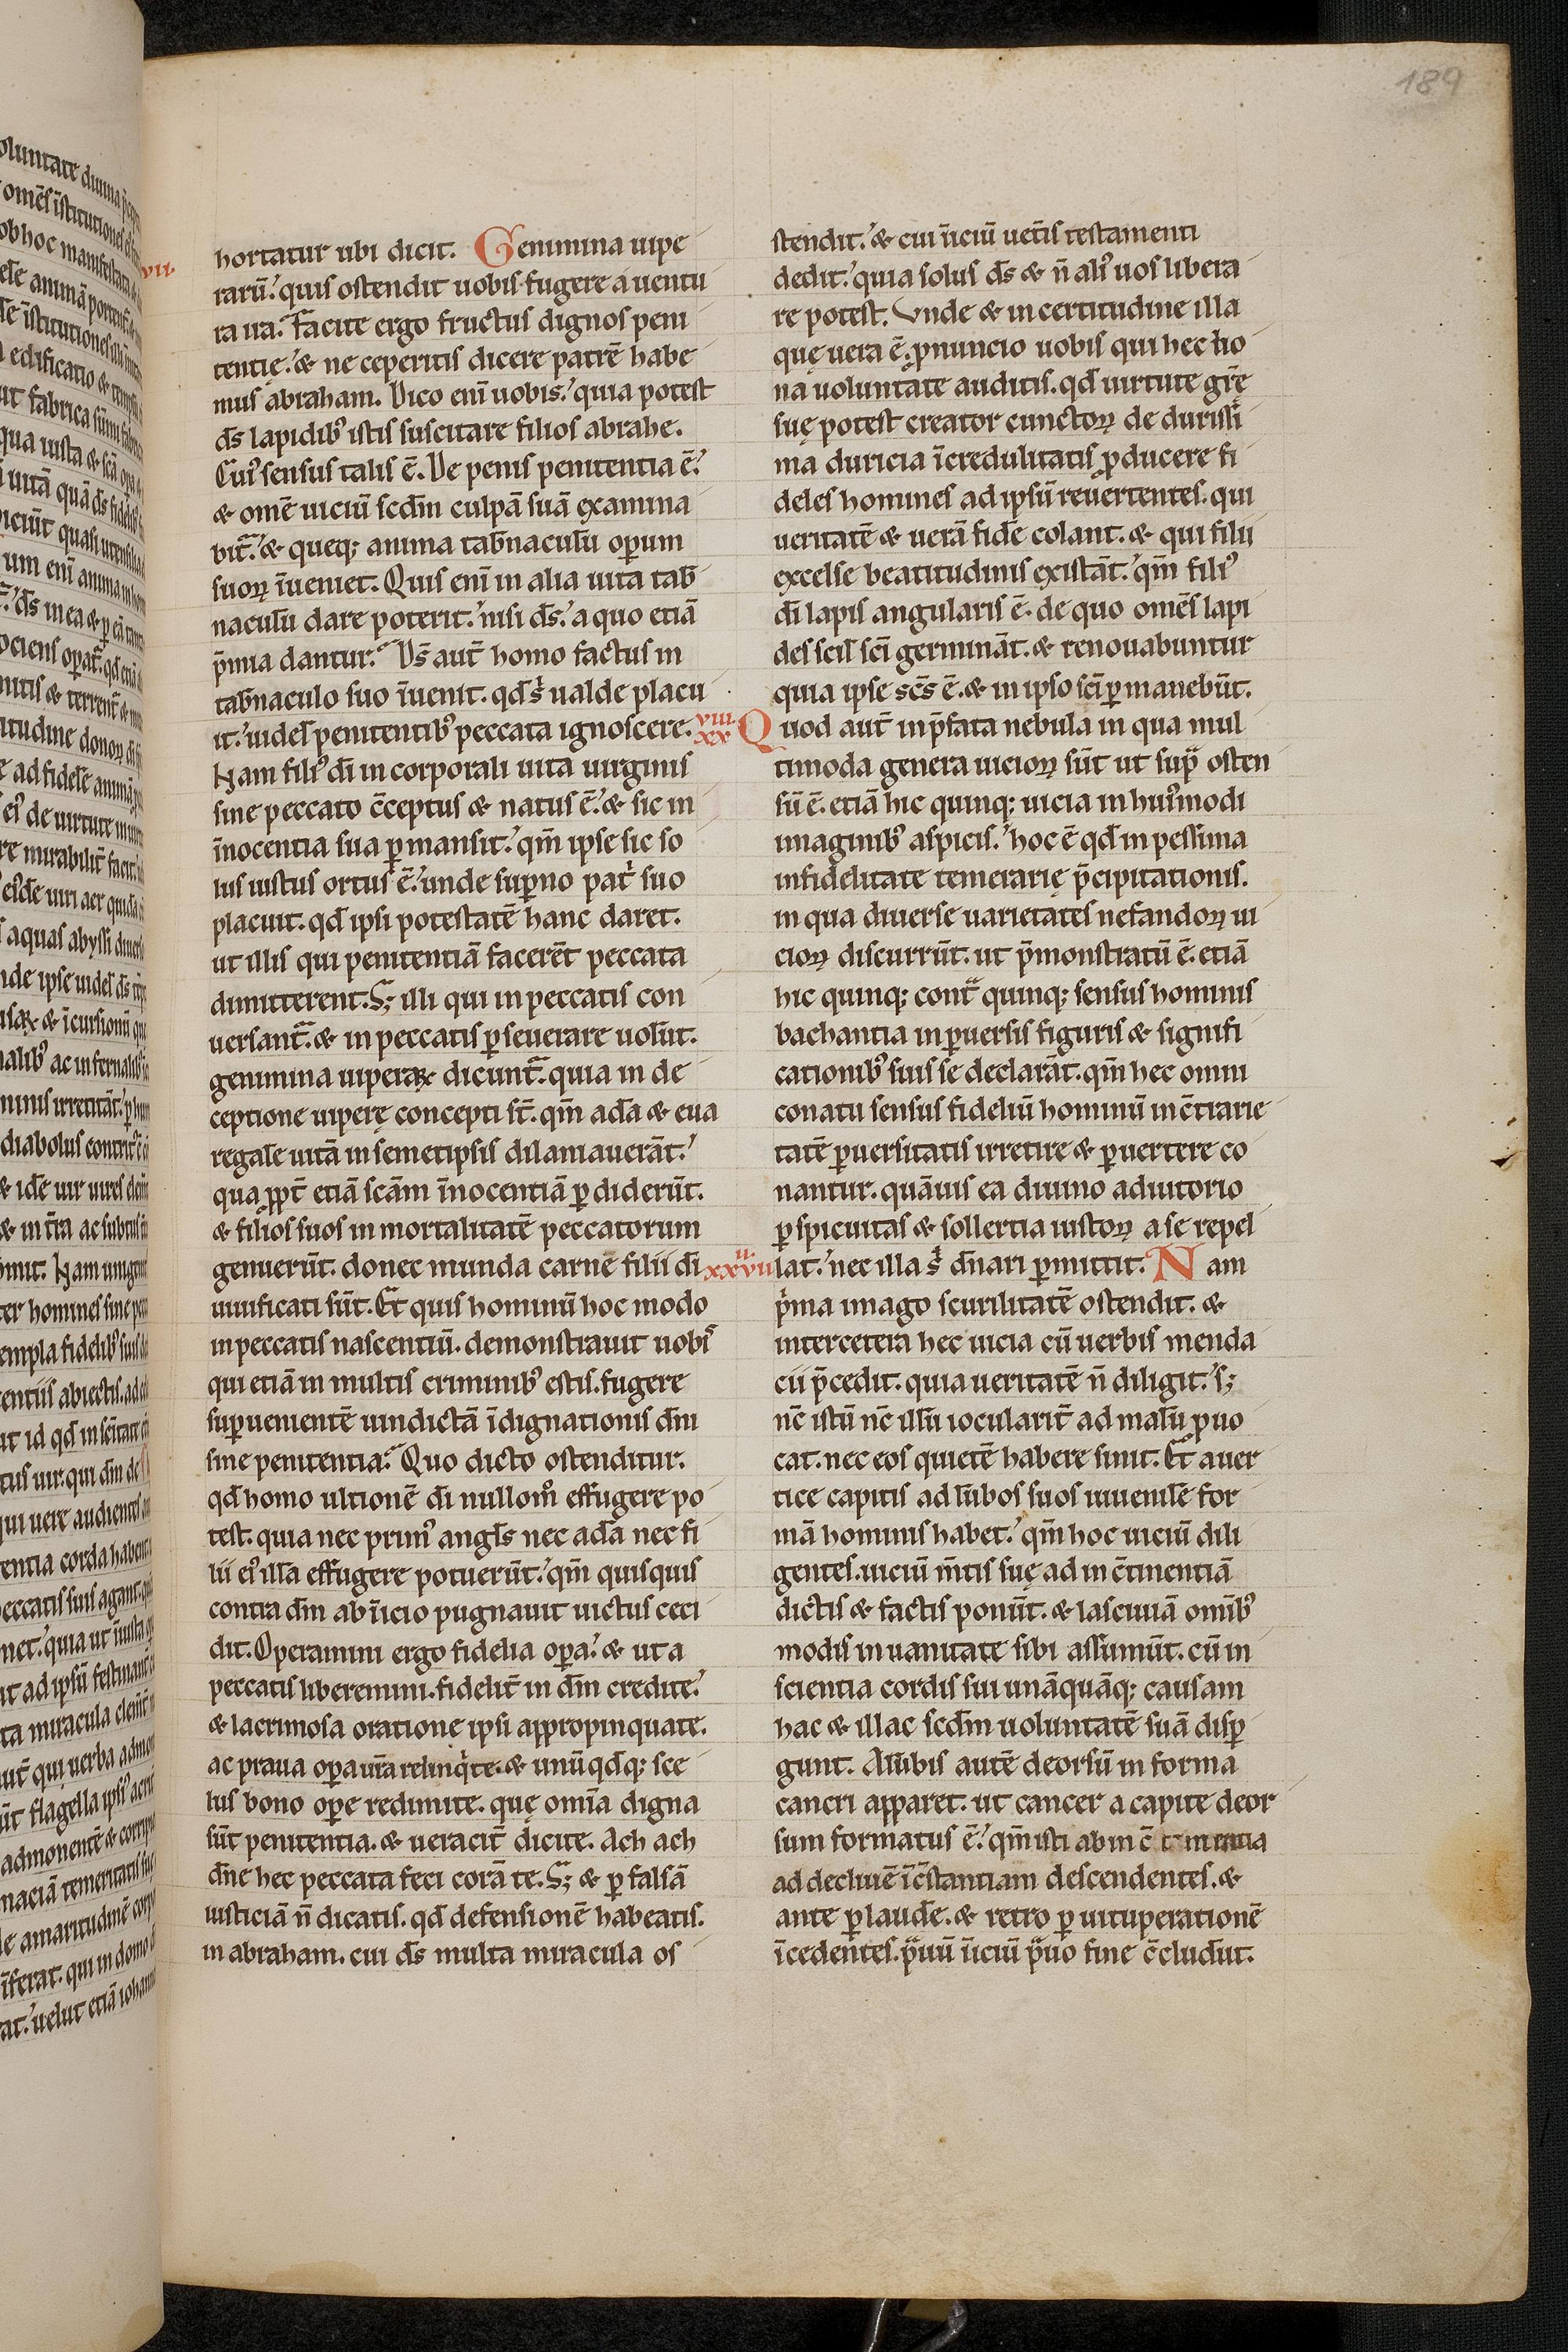 189
hortatur ubi dicit. Genimina uipe
rarū.' quis ostendit uobis fugere a uentu
ra ira.᷈ Facite ergo fructus dignos peni
tentię.' & ne ceperitis dicere patrē habe
mus abraham. Dico eni̅ uobis.' quia potest
ds̄ lapidibꝰ istis suscitare filios abrahe.
Cuiꝰ sensus talis ē. De penis penitentia ē.'
& omē uiciū scdm̄ culpā suā examina
bit᷈.' & queq; anima tab̄naculū oꝑum
suoꝝ īueniet. Quis eni̅ in alia uita tab̄
naculū dare poterit.' nisi ds̄.' a quo etiā
p̄mia dantur.᷈ Ds̄ aut̄ homo factus in
tab̄naculo suo īuenit. qd̄ sⁱ ualde placu
it.' uidel̄ penitentibꝰ peccata ignoscere.
Nam filiꝰ dī in corporali uita uirginis
sine peccato c̄ceptus & natus ē.' & sic in
īnocentia sua ꝑmansit.' qm̄ ipse sic so
lus iustus ortus ē.' unde suꝑno pat̄ suo
placuit. qd̄ ipsi potestatē hanc daret.
ut illis qui penitentiā facerēt peccata
dimitterent. S; illi qui in peccatis con
uersant᷈. & in peccatis ꝑseuerare uolūt.
genimina uiperaꝝ dicunt᷈. quia in de
ceptione uiperę concepti st̄. qm̄ adā & eua
regalē uitā in semetipsis dilaniauerāt.'
qua ꝓpt̄ etiā scām īnocentiā ꝑdiderūt.
& filios suos in mortalitatē peccatorum
genuerūt. donec munda carnē filii dī
uiuificati sūt. Et quis hominū hoc modo
in peccatis nascentiū. demonstrauit uobis
qui etiā in multis criminibꝰ estis. fugere
suꝑuenientē uindictā īdignationis dm̄i
sine penitentia.᷈ Quo dicto ostenditur.
qd̄ homo ultionē dī nullom̊ effugere po
test. quia nec primꝰ angl̄s nec adā nec fi
lii eiꝰ illā effugere potuerūt.' qm̄ quisquis
contra dm̄ ab īicio pugnauit uictus ceci
dit. Operamini ergo fidelia oꝑa.' & ut a
peccatis liberemini. fidelit̄ in dm̄ credite.'
& lacrimosa oratione ipsi appropinquate.
ac praua oꝑa ur̄a relinqⁱte. & unū qdq; sce
lus bono oꝑe redimite. quę omīa digna
sūt penitentia. & ueracit̄ dicite. Ach ach
dn̄e hec peccata feci corā te. S; & ꝑ falsā
iusticiā n̄ dicatis. qd̄ defensionē habeatis.
in abraham. cui ds̄ multa miracula os
stendit.' & cui īiciū uetīs testamenti
dedit.' quia solus ds̄ & n̄ aliꝰ uos libera
re potest. Vnde & in certitudine illa
quę uera ē. ꝓnuncio uobis qui hec bo
na uoluntate auditis. qd̄ uirtute gr̄ę
suę potest creator cunctoꝝ de durissi
ma duricia īcredulitatis ꝓducere fi
deles homines ad ipsū reuertentes. qui
ueritatē & uerā fidē colant. & qui filii
excelse beatitudinis existāt.' qm̄ filiꝰ
dī lapis angularis ē. de quo omēs lapi
des scil̄ sc̄i germināt. & renouabuntur
quia ipse sc̄s ē. & in ipso sc̄i ꝑmanebūt.
viii.
xx Quod aut̄ in p̄fata nebula in qua mul
timoda genera uicioꝝ sūt ut supᷓ osten
sū ē. etiā hic quinq; uicia in huiꝰmodi
imaginibꝰ aspicis.' hoc ē qd̄ in pessima
infidelitate temerarię p̄cipitationis.
in qua diuerse uarietates nefandoꝝ ui
cioꝝ discurrūt. ut p̄monstratū ē. etiā
hic quinq; contᷓ quinq; sensus hominis
bachantia in ꝑuersis figuris & signifi
cationibꝰ suis se declarāt. qm̄ hec omni
conatu sensus fideliū hominū in c̄trarie
tatē ꝑuersitatis irretire & ꝑuertere co
nantur. quāuis ea diuino adiutorio
ꝑspicuitas & sollertia iustoꝝ a se repel
lat.' nec illa sⁱ dn̄ari ꝑmittit. Nam
pⁱma imago scurilitatē ostendit. &
inter cetera hec uicia cū uerbis menda
cii p̄cedit. quia ueritatē n̄ diligit.' s;
nc̄ istū nc̄ illū iocularit̄ ad malū ꝓuo
cat. nec eos quietē habere sinit. Et a uer
tice capitis ad lūbos suos iuuenilē for
mā hominis habet.' qm̄ hoc uiciū dili
gentes. uiciū m̄tis suę ad in c̄tinentiā
dictis & factis ponūt. & lasciuiā omībꝰ
modis in uanitate sibi assumūt. cū in
scientia cordis sui unāquāq; causam
hac & illac scdm̄ uoluntatē suā disꝑ
gunt. A lūbis autē deorsū in forma
cancri apparet. ut cancer a capite deor
sum formatus ē.' qm̄ isti ab in c̄tinentia
ad decliuē īc̄stantiam descendentes. &
ante ꝑ laudē. & retro ꝑ uituperationē
īcedentes. pᷓuū īiciū pᷓuo fine c̄cludūt.